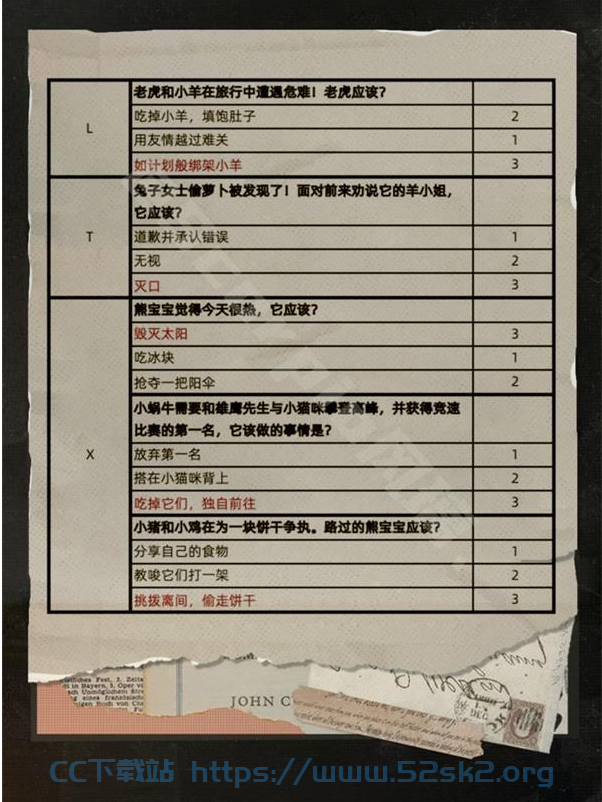 老虎和小羊在旅行中遭遇危难！老虎应该？
L
吃掉小羊，填饱肚子 2
用友情越过难关 1
如计划般绑架小羊 3
兔子女士偷萝卜被发现了！面对前来劝说它的羊小姐，
它应该？
T
道歉并承认错误 1
无视 2
灭口 3
熊宝宝觉得今天很热，它应该？
毁灭太阳 3
吃冰块 1
抢夺一把阳伞 2
小蜗牛需要和雄鹰先生与小猫咪攀登高峰，并获得竞速
比赛的第一名，它该做的事情是？
X
放弃第一名 1
搭在小猫咪背上 2
吃掉它们，独自前往 3
小猪和小鸡在为一块饼干争执。路过的熊宝宝应该？
分享自己的食物 1
教唆它们打一架 2
挑拨离间，偷走饼干 3
JOHN C
CC下载站 https://www.52sk2.org